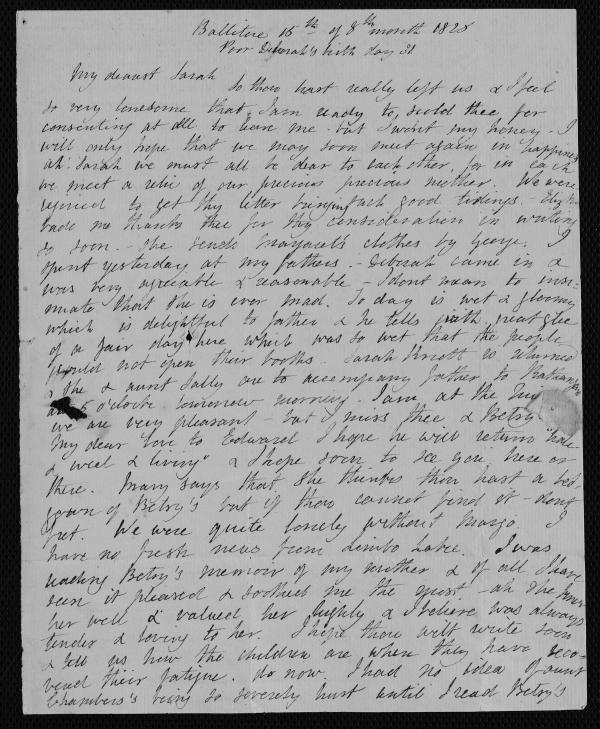 Ballitore 15th of 8th month 1828
Poor Deborah's birth day 31
My dearest Sarah
So thou hast really left us & I feel
so very lonesome that I am ready to scold thee for
consenting at all to leave me - but I won't my honey - I
will only hope that we may soon meet again in happiness
ah! Sarah we must all be dear to each other, for in each
we meet a relic of our precious precious mother. We were
rejoiced to get thy letter bringing such good tidings - Eliza
bade me thank thee for thy consideration in writing
so soon - She sends Margaret's clothes by George. I
spent yesterday at my fathers. - Deborah came in &
was very agreeable & reasonable - I dont mean to insi-
nuate that she is ever mad. To day is wet & gloomy
which is delightful to father & he tells with great glee
of a fair day here which was so wet that the people
would not open their booths. Sarah Knott is returned
& she & aunt Sally are to accompany father to
o'clock tomorrow morning. I am at the
we are very pleasant - but I miss thee & Betsy
My dear love to Edward I hope he will return "hale
& weel & living" & I hope soon to see you here or
there. Mary says that she thinks thou hast a bed
gown of Betsy's but if thou cannot find it - dont
fret. We were quite lonely without Margo. I
have no fresh news from Limbo Lake. I was
reading Betsy's memoir of my mother & of all I have
seen it pleased & soothed me the most - ah she knew
her well & valued her highly & I believe was always
tender & loving to her. I hope thou wilt write soon
& tell us how the children are when they have reco-
vered their fatigue. do now. I had no idea of aunt
Chambers's being so severely hurt until I read Betsy's